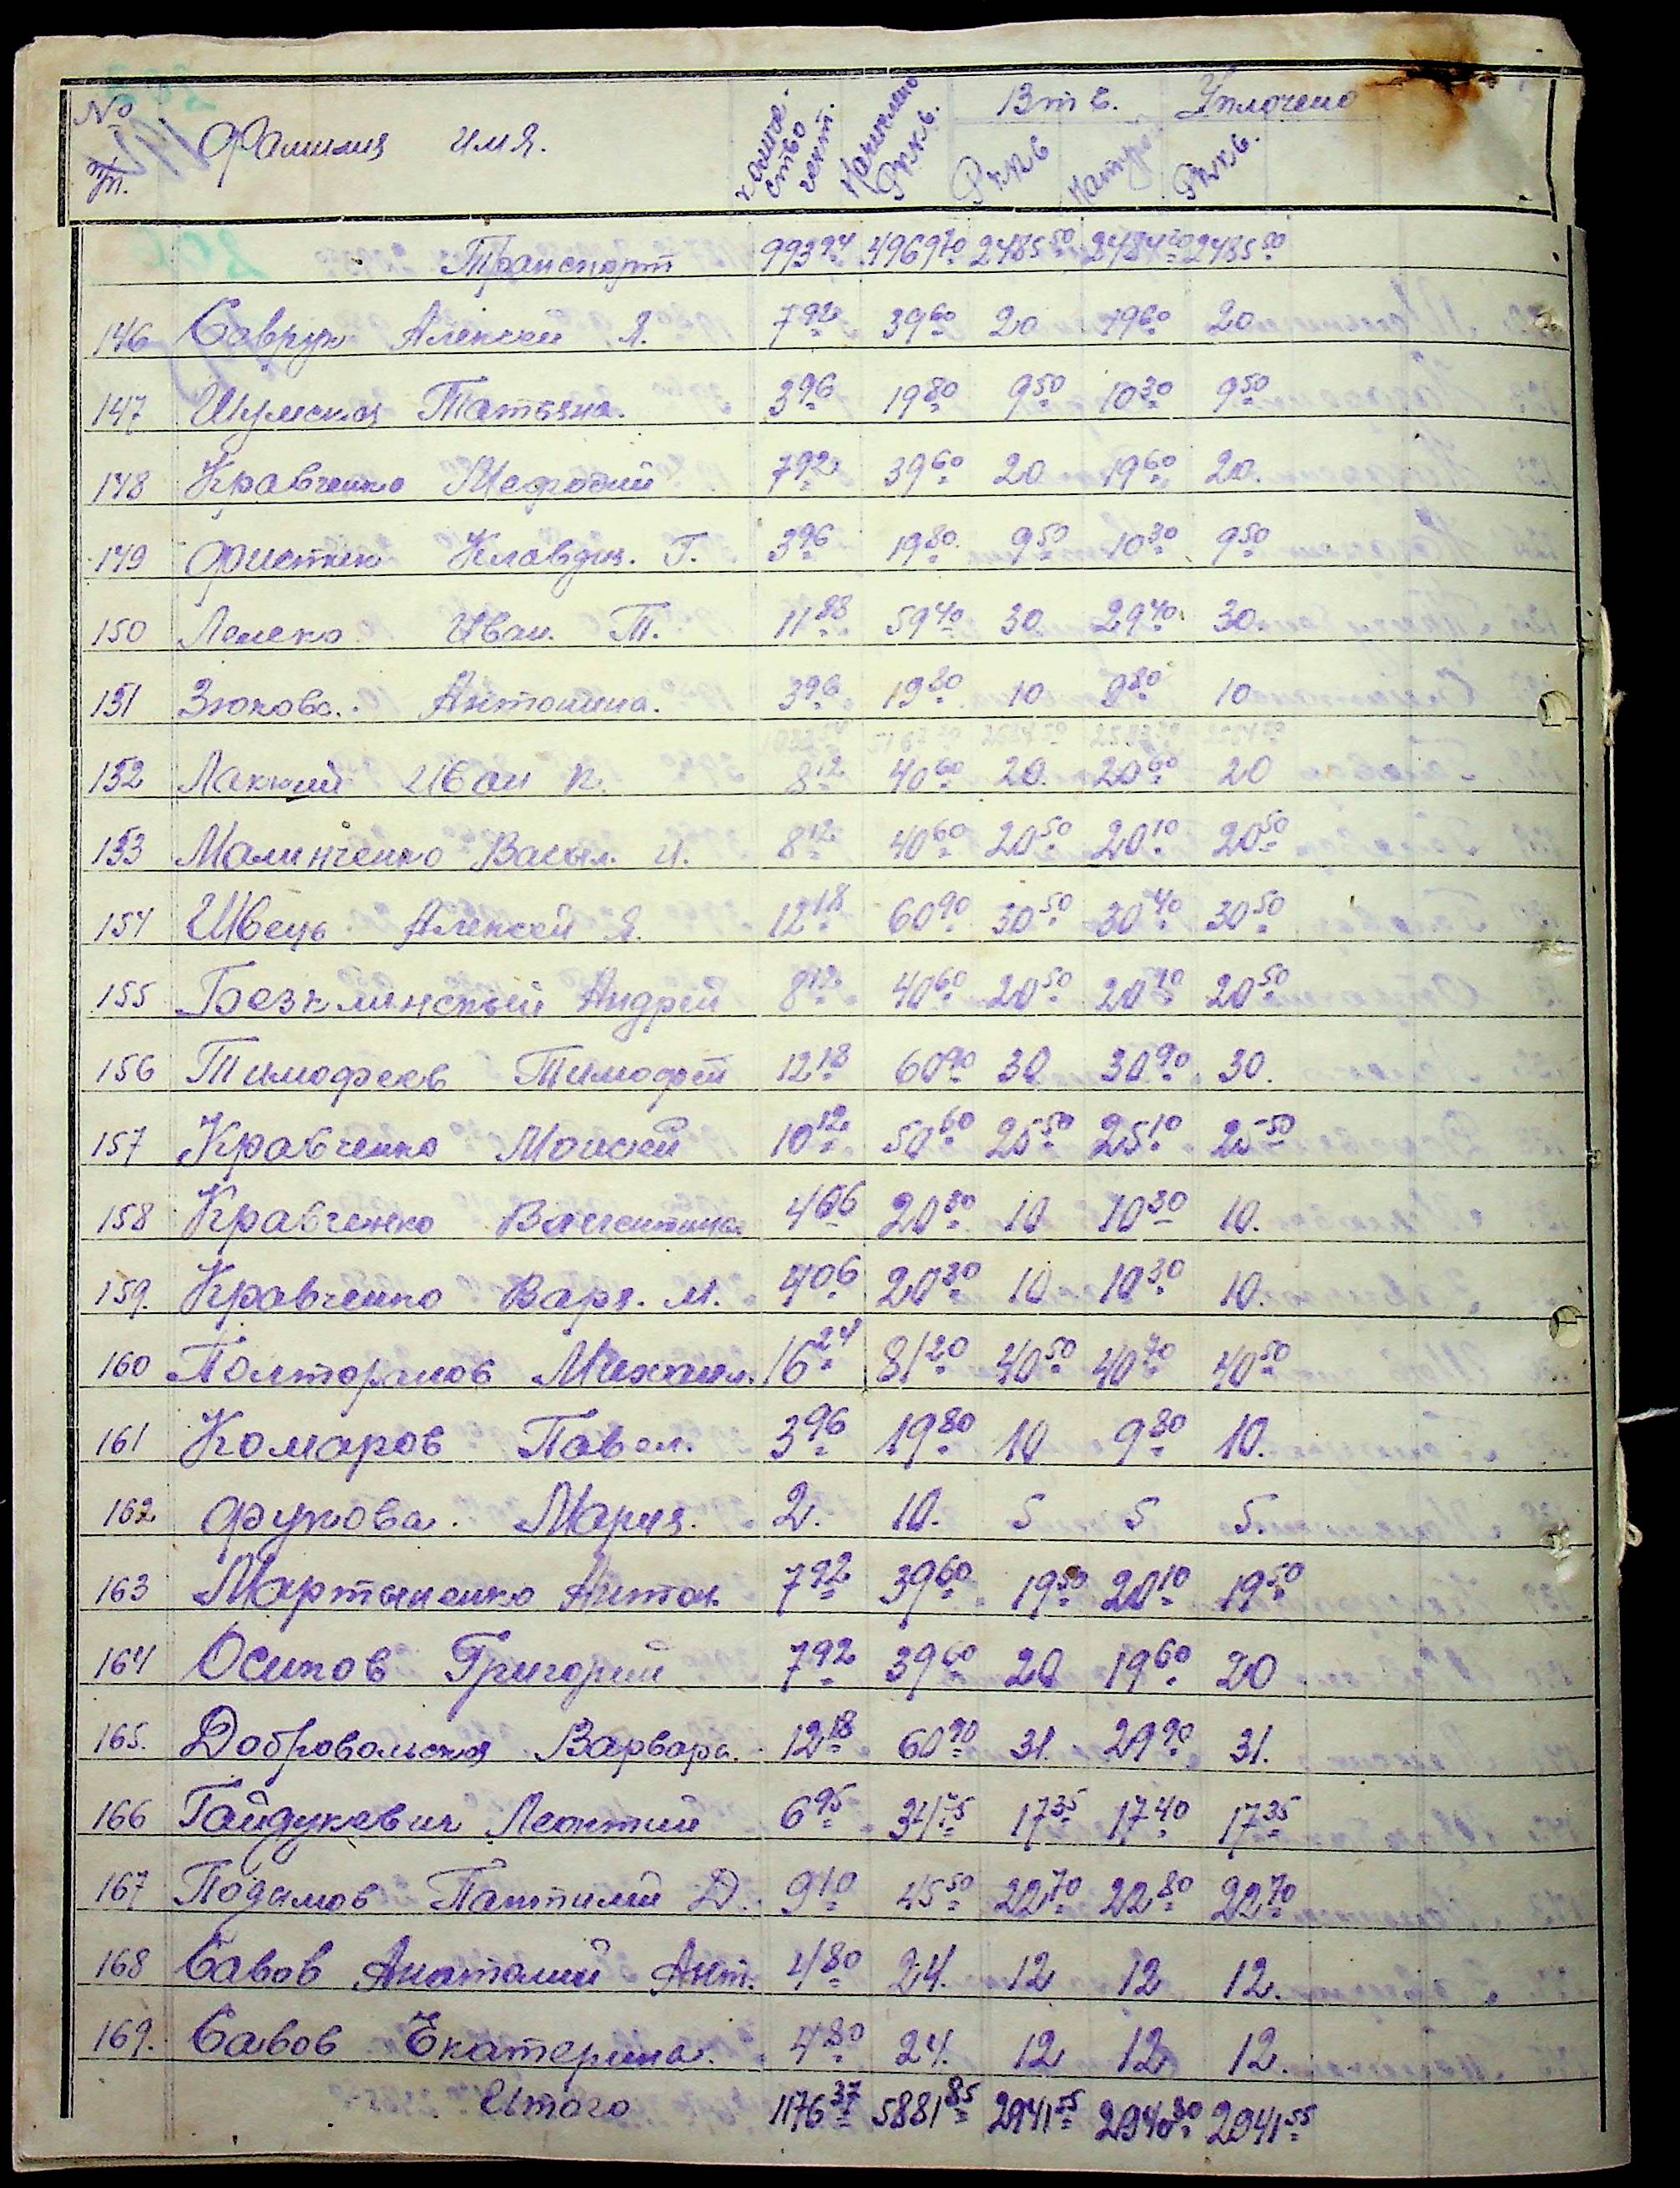 № п/п. Фамилия имя. количество гект. Начислено РККВ. В т.ч. Уплочено
РККВ Натур. РККВ.
Транспорт 993 94 4969 70 2485 50 2484 20 2485 50
146 Саврук Алексей Я. 7 92 39 60 20 19 60 20
147 Шумская Татьяна. 3 96 19 80 9 50 10 30 9 50
148 Кравченко Мефодий 7 92 39 60 20 19 60 20.
149 Клавдия. Г. 3 96 19 80 9 50 10 30 9 50
150 Лелеко Иван. Т. 11 88 59 40 30 29 40 30.
151 Зюкова. Антонина. 3 96 19 80 10 9 80 10
152 Лакжий Иван К. 8 12 40 60 20. 20 60 20
153 Малинченко Васил. И. 8 12 40 60 20 50 20 10 20 50
154 Швець Алексей Я. 12 18 60 90 30 50 30 40 30 50
155 Безклинский Андрей 8 12 40 60 20 50 20 10 20 50
156 Тимофеев Тимофей 12 18 60 90 30 30 90 30.
157 Кравченко Моисей 10 12 50 60 25 50 25 10 25 50
158 Кравченко Валентина 4 06 20 30 10 10 30 10.
159. Кравченко Варв. М. 4 06 20 30 10 10 30 10.
160 Полторанов Михаил. 16 24 81 20 40 50 40 70 40 50
161 Комаров Павел. 3 96 19 80 10 9 80 10.
162 Фукова. Мария. 2. 10. 5 5 5.
163 Мартыненко Антон 7 92 39 60 19 50 20 10 19 50
164 Осипов Григорий 7 92 39 60 20 19 60 20
165. Добровольская Варвара. 12 18 60 90 31. 29 90 31.
166 Гайдукевич Леонтий 6 95 34 75 17 35 17 40 17 35
167 Подамов Пантилий Д. 9 10 45 50 22 70 22 80 22 70
168 Савов Анатолий Ант. 4 80 24. 12 12 12.
169. Савов Екатерина. 4 80 24. 12 12 12.
Итого 1176 37 5881 85 2941 55 2940 30 2941 55